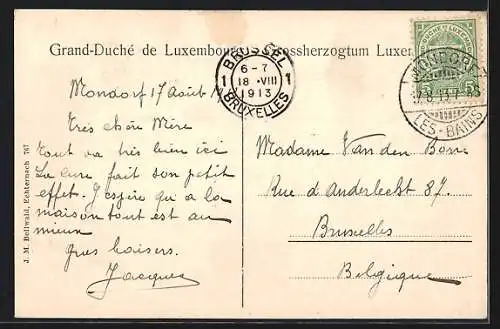 Grand-Duché de Luxembourg Grossherzogtum Luxem
BRUSSEL
6-7
1 18 VIII 1
1913
BRUXELLES
MONDORF
LES-BAINS
5
Mondorf 17 Août
Très chère Mère
Tout va très bien ici
La cure fait son petit
effet. J'espère qu'à la
maison tout est au
mieux
Gros baisers.
Jacques
Madame Van den
Rue d'Anderlecht 87.
Bruxelles
Belgique
J. M. Bellwald, Echternach 767